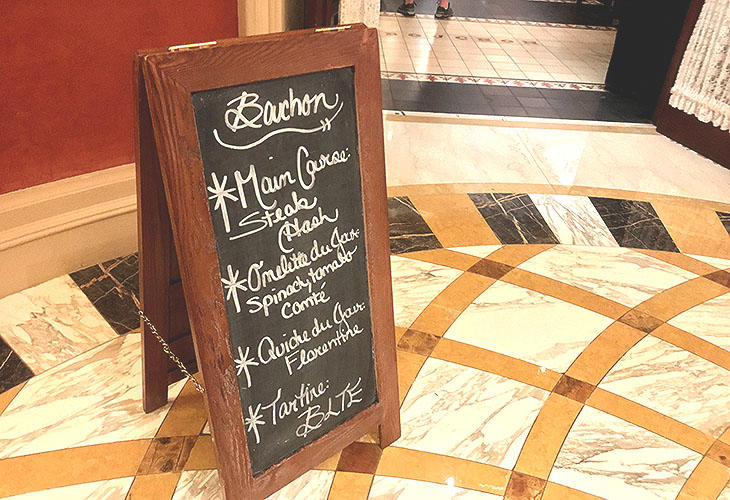 Bouchon
Main Course:
Steak
Hash
Omelette du Jour:
Spinach, tomato
Comté
Quiche du Jour:
Florentine
Tartine:
BLTE